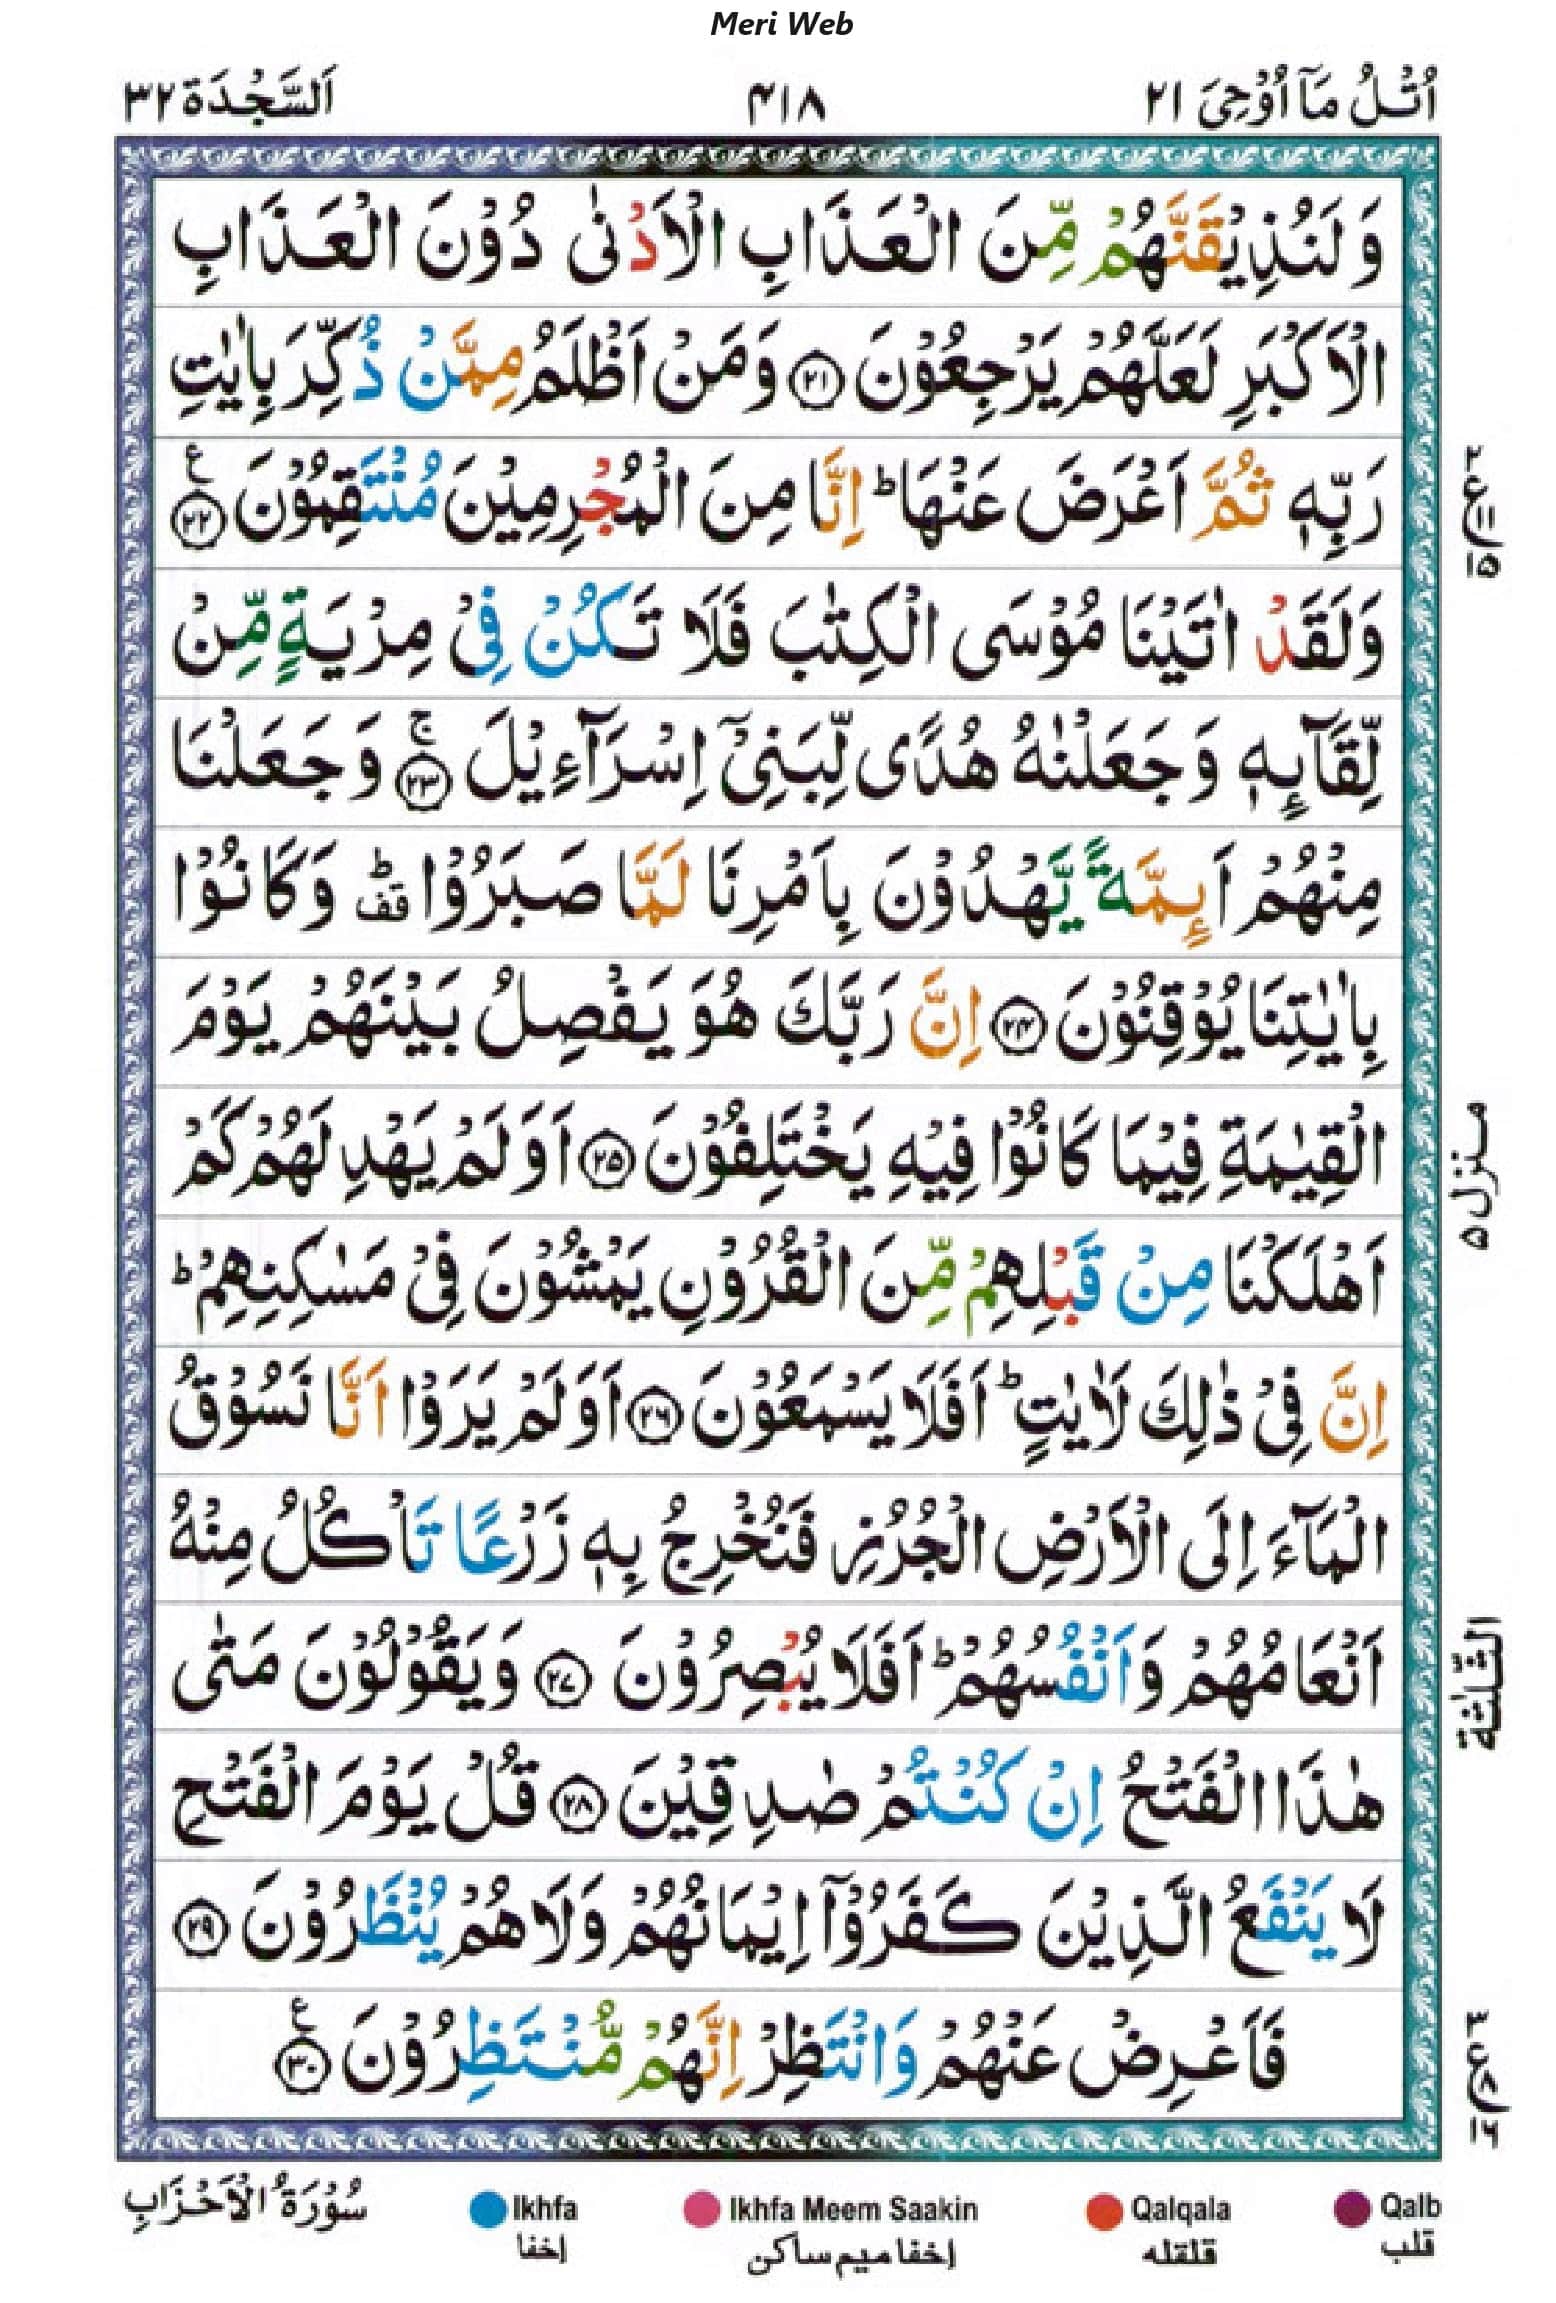 Meri Web
اُتْلُ مَآ اُوْحِیَ ٢١
٤١٨
اَلسَّجْدَة ٣٢
وَلَنُذِيْقَنَّهُمْ مِّنَ الْعَذَابِ الْاَدْنٰى دُوْنَ الْعَذَابِ
الْاَكْبَرِ لَعَلَّهُمْ يَرْجِعُوْنَ ﴿٢١﴾ وَمَنْ اَظْلَمُ مِمَّنْ ذُكِّرَ بِاٰيٰتِ
رَبِّهٖ ثُمَّ اَعْرَضَ عَنْهَا ؕ اِنَّا مِنَ الْمُجْرِمِيْنَ مُنْتَقِمُوْنَ ﴿٢٢﴾ ع
وَلَقَدْ اٰتَيْنَا مُوْسَى الْكِتٰبَ فَلَا تَكُنْ فِیْ مِرْيَةٍ مِّنْ
لِّقَآئِهٖ وَجَعَلْنٰهُ هُدًى لِّبَنِیْٓ اِسْرَآءِيْلَ ﴿٢٣﴾ ۚ وَجَعَلْنَا
مِنْهُمْ اَئِمَّةً يَّهْدُوْنَ بِاَمْرِنَا لَمَّا صَبَرُوْا ؕ قف وَكَانُوْا
بِاٰيٰتِنَا يُوْقِنُوْنَ ﴿٢٤﴾ اِنَّ رَبَّكَ هُوَ يَفْصِلُ بَيْنَهُمْ يَوْمَ
الْقِيٰمَةِ فِيْمَا كَانُوْا فِيْهِ يَخْتَلِفُوْنَ ﴿٢٥﴾ اَوَلَمْ يَهْدِ لَهُمْ كَمْ
اَهْلَكْنَا مِنْ قَبْلِهِمْ مِّنَ الْقُرُوْنِ يَمْشُوْنَ فِیْ مَسٰكِنِهِمْ ؕ
اِنَّ فِیْ ذٰلِكَ لَاٰيٰتٍ ؕ اَفَلَا يَسْمَعُوْنَ ﴿٢٦﴾ اَوَلَمْ يَرَوْا اَنَّا نَسُوْقُ
الْمَآءَ اِلَى الْاَرْضِ الْجُرُزِ فَنُخْرِجُ بِهٖ زَرْعًا تَاْكُلُ مِنْهُ
اَنْعَامُهُمْ وَاَنْفُسُهُمْ ؕ اَفَلَا يُبْصِرُوْنَ ﴿٢٧﴾ وَيَقُوْلُوْنَ مَتٰى
هٰذَا الْفَتْحُ اِنْ كُنْتُمْ صٰدِقِيْنَ ﴿٢٨﴾ قُلْ يَوْمَ الْفَتْحِ
لَا يَنْفَعُ الَّذِيْنَ كَفَرُوْٓا اِيْمَانُهُمْ وَلَا هُمْ يُنْظَرُوْنَ ﴿٢٩﴾
فَاَعْرِضْ عَنْهُمْ وَانْتَظِرْ اِنَّهُمْ مُّنْتَظِرُوْنَ ﴿٣٠﴾ ع
٢ ع ١١ ١٥
منزل ٥
الثلٰثة
٣ ع ٨ ١٦
سُوْرَةُ الْاَحْزَابِ
Ikhfa
إخفا
Ikhfa Meem Saakin
إخفا ميم ساكن
Qalqala
قلقله
Qalb
قلب